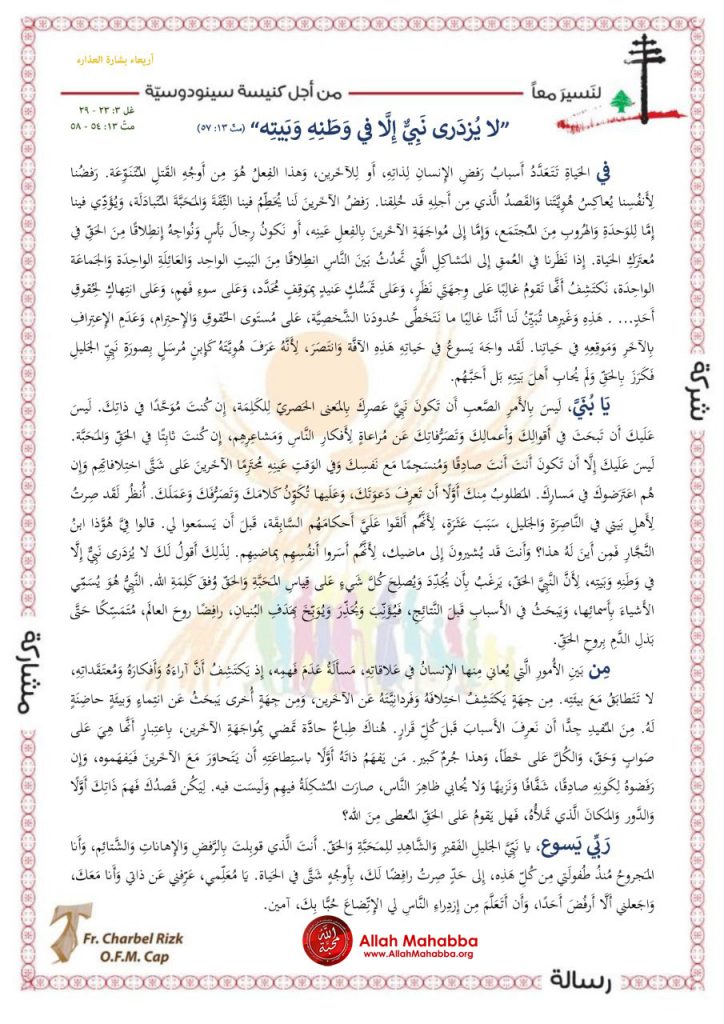 أربعاء بشارة العذراء
لنَسيرَ معاً
من أجل كنيسة سينودوسيّة
غل ٣: ٢٣ - ٢٩
متّ ١٣: ٥٤ - ٥٨
”لا يُزدَرى نَبِيٌّ إلَّا في وَطَنِهِ وَبَيتِه“ (متّ ١٣: ٥٧)
في الحَياةِ تَتَعَدَّدُ أسبابُ رَفضِ الإنسانِ لِذاتِهِ، أو لِلآخَرين، وَهذا الفِعلُ هُوَ مِن أَوجُهِ القَتلِ المُتَنَوِّعَة. رَفضُنا
لِأَنفُسِنا يُعاكِسُ هُوِيَّتَنا وَالقَصدُ الَّذي مِن أَجلِهِ قَد خُلِقنا. رَفضُ الآخَرينَ لَنا يُحَطِّمُ فينا الثِّقَةَ وَالمَحَبَّةَ المُتَبادَلَة، وَيُؤَدِّي فينا
إمَّا لِلوَحدَةِ وَالهُروبِ مِنَ المُجتَمَع، وَإمَّا إلى مُواجَهَةِ الآخَرينَ بِالفِعلِ عَينِه، أو نَكونُ رِجالَ بَأسٍ وَنُواجِهُ إنطِلاقًا مِنَ الحَقِّ في
مُعتَرَكِ الحَياة. إذا نَظَرنا في العُمقِ إلى المَشاكِلِ الَّتي تَحدُثُ بَينَ النَّاسِ انطِلاقًا مِنَ البَيتِ الواحِد وَالعائِلَةِ الواحِدَة وَالجَماعَة
الواحِدَة، نَكتَشِفُ أَنَّها تَقومُ غالِبًا عَلى وِجهَتَي نَظَرٍ، وَعَلى تَمَسُّكٍ عَنيدٍ بِمَوقِفٍ مُحَدَّد، وَعَلى سوءِ فَهمٍ، وَعَلى انتِهاكٍ لِحُقوقِ
أَحَدٍ... . هَذِهِ وَغَيرُها تُبَيِّنُ لَنا أَنَّنا غالِبًا ما نَتَخَطَّى حُدودَنا الشَّخصِيَّة، عَلى مُستَوى الحُقوقِ وَالإحتِرام، وَعَدَمِ الإعتِرافِ
بِالآخَرِ وَمَوقِعِهِ في حَياتِنا. لَقَد واجَهَ يَسوعُ في حَياتِهِ هَذِهِ الآفَّة وَانتَصَرَ، لِأَنَّهُ عَرَفَ هُوِيَّتَهُ كَإبنٍ مُرسَلٍ بِصورَةِ نَبِيِّ الجَليل
فَكَرَزَ بِالحَقِّ وَلَم يُحابِ أَهلَ بَيتِهِ بَل أَحَبَّهُم.
يَا بُنَيَّ، لَيسَ بِالأَمرِ الصَّعبِ أَن تَكونَ نَبِيَّ عَصرِكَ بِالمَعنى الحَصرِيّ لِلكَلِمَة، إن كُنتَ مُوَحَّدًا في ذاتِكَ. لَيسَ
عَلَيكَ أَن تَبحَثَ في أَقوالِكَ وَأَعمالِكَ وَتَصَرُّفاتِكَ عَن مُراعاةٍ لِأَفكارِ النَّاسِ وَمَشاعِرِهِم، إن كُنتَ ثابِتًا في الحَقِّ وَالمَحَبَّة.
لَيسَ عَلَيكَ إلَّا أَن تَكونَ أَنتَ أَنتَ صادِقًا وَمُنسَجِمًا مَع نَفسِكَ وَفي الوَقتِ عَينِهِ مُحتَرِمًا الآخَرينَ عَلى شَتَّى اختِلافاتِهِم وَإن
هُم اعتَرَضوكَ في مَسارِكَ. المَطلوبُ مِنكَ أَوَّلًا أَن تَعرِفَ دَعوَتَكَ، وَعَلَيها تُكَوِّنُ كَلامَكَ وَتَصَرُّفَكَ وَعَمَلَكَ. أُنظُر لَقَد صِرتُ
لِأَهلِ بَيتي في النَّاصِرَةِ وَالجَليل، سَبَبَ عَثرَةٍ، لِأَنَّهُم أَلقَوا عَلَيَّ أَحكامَهُم السَّابِقَة، قَبلَ أَن يَسمَعوا لي. قالوا فِيَّ هُوَّذا ابنُ
النَّجَّار فَمِن أَينَ لَهُ هذا؟ وَأَنتَ قَد يُشيرونَ إلى ماضيكَ، لِأَنَّهُم أَسَروا أَنفُسِهِم بِماضيهِم. لِذَلِكَ أَقولُ لَكَ لا يُزدَرى نَبِيٌّ إلَّا
في وَطَنِهِ وَبَيتِه، لِأَنَّ النَّبِيَّ الحَقّ، يَرغَبُ بِأَن يُجَدِّدَ وَيُصلِحَ كُلَّ شَيءٍ عَلى قِياسِ المَحَبَّةِ وَالحَقِّ وُفقَ كَلِمَةِ الله. النَّبِيُّ هُوَ يُسَمِّي
الأَشياءَ بِأَسمائِها، وَيَبحَثُ في الأَسبابِ قَبلَ النَّتائِج، فَيُؤَنِّبُ وَيُحَذِّرُ وَيُوَبِّخُ بِهَدَفِ البُنيان، رافِضًا روحَ العالَم، مُتَمَسِّكًا حَتَّى
بَذلِ الدَّمِ بِروحِ الحَقّ.
مِن بَينِ الأُمورِ الَّتي يُعاني مِنها الإنسانُ في عَلاقاتِهِ، مَسأَلَةُ عَدَمِ فَهمِه، إذ يَكتَشِفُ أَنَّ آراءَهُ وَأَفكارَهُ وَمُعتَقَداتِه،
لا تَتَطابَقُ مَعَ بيئَتِهِ. مِن جِهَةٍ يَكتَشِفُ اختِلافَهُ وَفَردانِيَّتَهُ عَنِ الآخَرين، وَمِن جِهَةٍ أُخرى يَبحَثُ عَن انتِماءٍ وَبيئَةٍ حاضِنَةٍ
لَهُ. مِنَ المُفيدِ جِدًّا أَن نَعرِفَ الأَسبابَ قَبلَ كُلِّ قَرارٍ. هُناكَ طِباعٌ حادَّة تَمضي بِمُواجَهَةِ الآخَرين، بِاعتِبارِ أَنَّها هِيَ عَلى
صَوابٍ وَحَقّ، وَالكُلَّ عَلى خَطَأ، وَهذا جُرمٌ كَبير. مَن يَفهَمُ ذاتَهُ أَوَّلًا بِاستِطاعَتِهِ أَن يَتَحاوَرَ مَعَ الآخَرينَ فَيَفهَموه، وَإن
رَفَضوهُ لِكَونِهِ صادِقًا، شَفَّافًا وَنَزيهًا وَلا يُحابي ظاهِرَ النَّاس، صارَتِ المُشكِلَةُ فيهِم وَلَيسَت فيه. لِيَكُن قَصدُكَ فَهمَ ذاتِكَ أَوَّلًا
وَالدَّورَ وَالمَكانَ الَّذي تَملَأُهُ، فَهل يَقومُ عَلى الحَقِّ المُعطى مِنَ الله؟
رَبِّي يَسوع، يا نَبِيَّ الجَليلِ الفَقيرِ وَالشَّاهِدِ لِلمَحَبَّةِ وَالحَقّ. أَنتَ الَّذي قوبِلتَ بِالرَّفضِ وَالإهاناتِ وَالشَّتائِم، وَأَنا
المَجروحُ مُنذُ طُفولَتي مِن كُلِّ هَذِه، إلى حَدٍّ صِرتُ رافِضًا لَكَ، بِأَوجُهٍ شَتَّى في الحَياة. يَا مُعَلِّمي، عَرِّفني عَن ذاتي وَأَنا مَعَكَ،
وَاجعَلني أَلَّا أَرفُضَ أَحَدًا، وَأَن أَتَعَلَّمَ مِن إزدِراءِ النَّاسِ لي الإتِّضاعَ حُبًّا بِكَ، آمين.
شركة
مشاركة
Fr. Charbel Rizk
O.F.M. Cap
الله محبّة
Allah Mahabba
www.AllahMahabba.org
رسالة